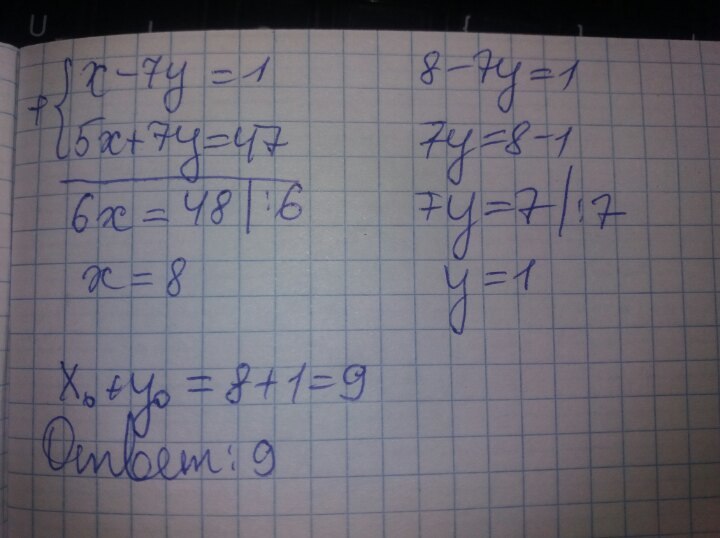 x-7y=1
+{5x+7y=47
6x=48|:6
x=8
8-7y=1
7y=8-1
7y=7|:7
y=1
x₀+y₀=8+1=9
Ответ: 9
U